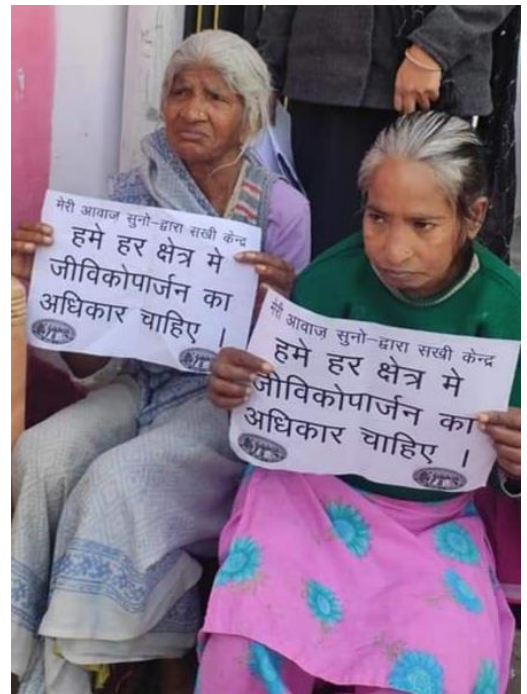 मेरी आवाज़ सुनो-द्वारा सखी केन्द्र
हमे हर क्षेत्र मे
जीविकोपार्जन का
अधिकार चाहिए ।
मेरी आवाज़ सुनो-द्वारा सखी केन्द्र
हमे हर क्षेत्र मे
जीविकोपार्जन का
अधिकार चाहिए ।